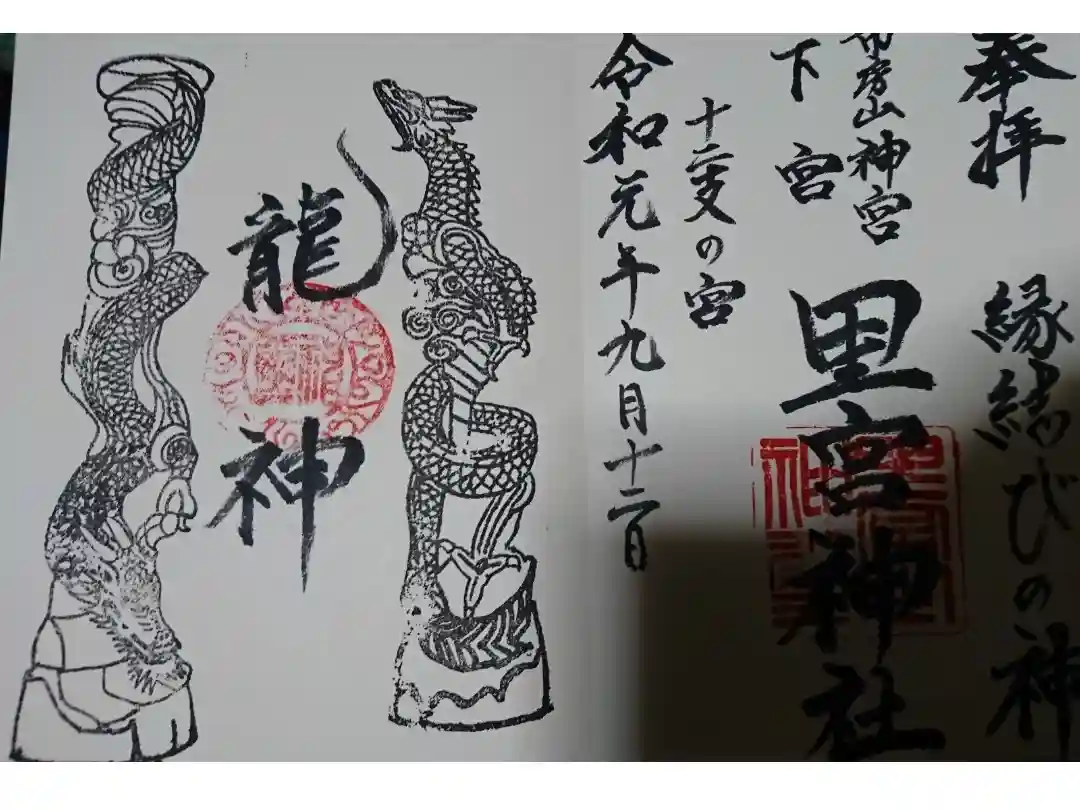 奉拝 縁結びの神
市房山神宮
下宮 里宮神社
十二支の宮
令和元年九月十二日
龍神